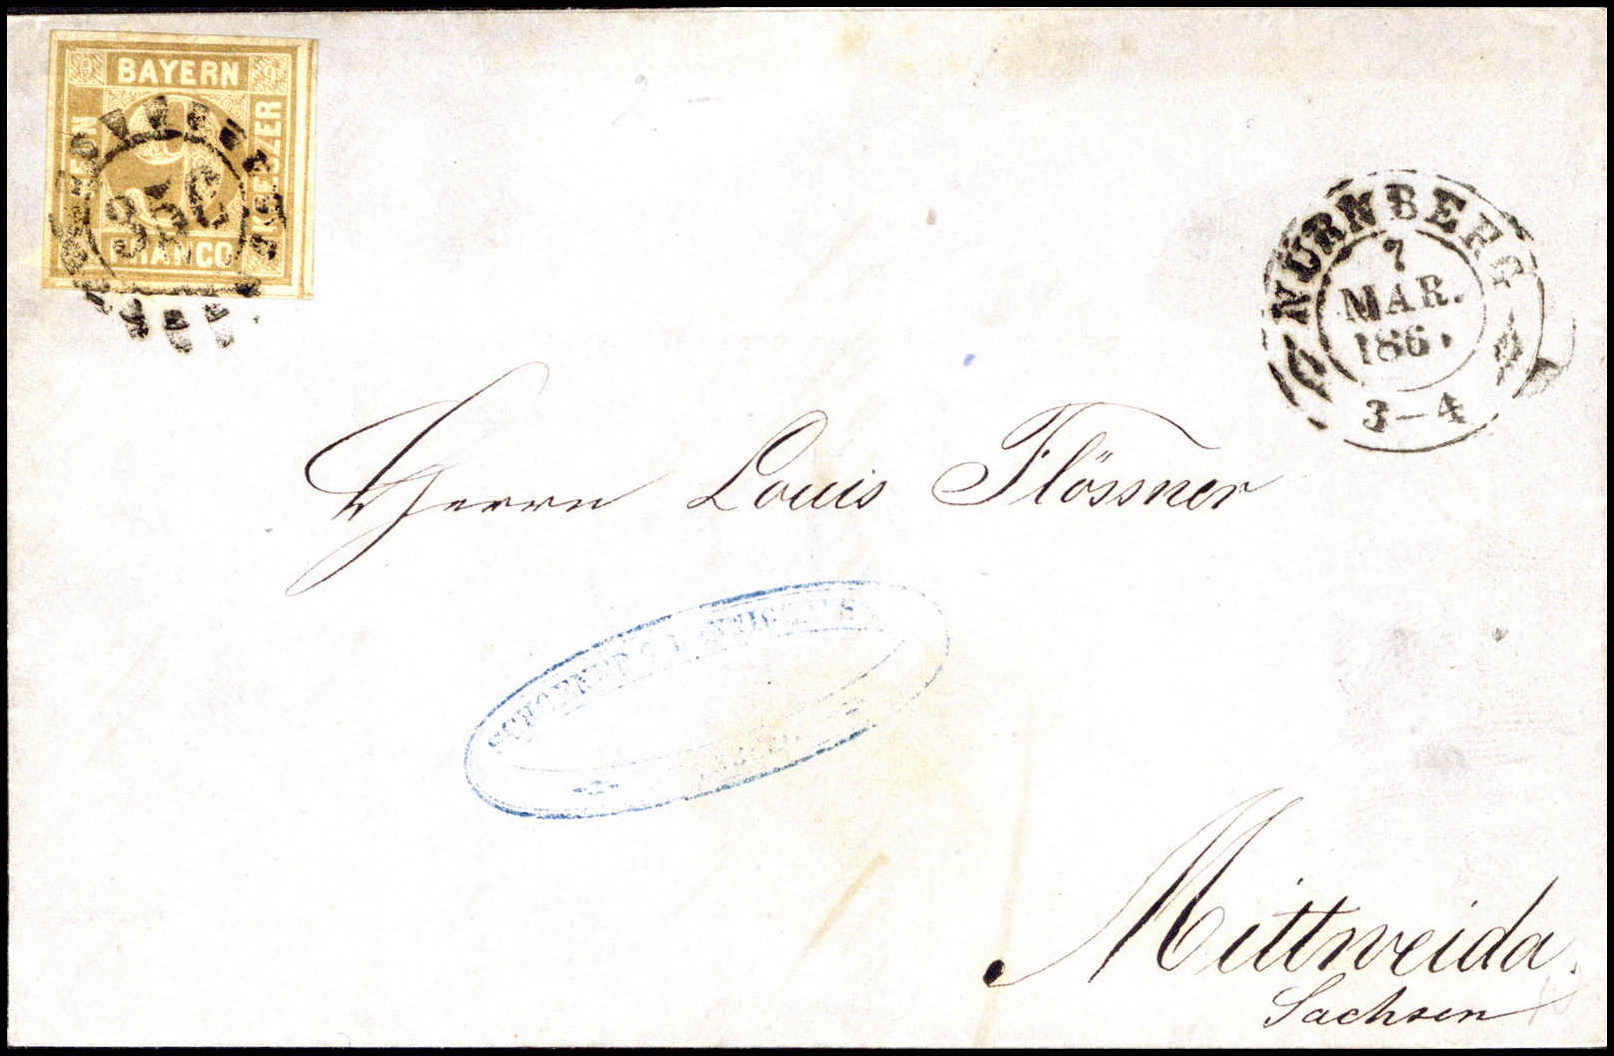 BAYERN
KREUZER
FRANCO
356
NÜRNBERG
7
MAR.
186
3-4
Herrn Louis Flössner
Mittweida
Sachsen